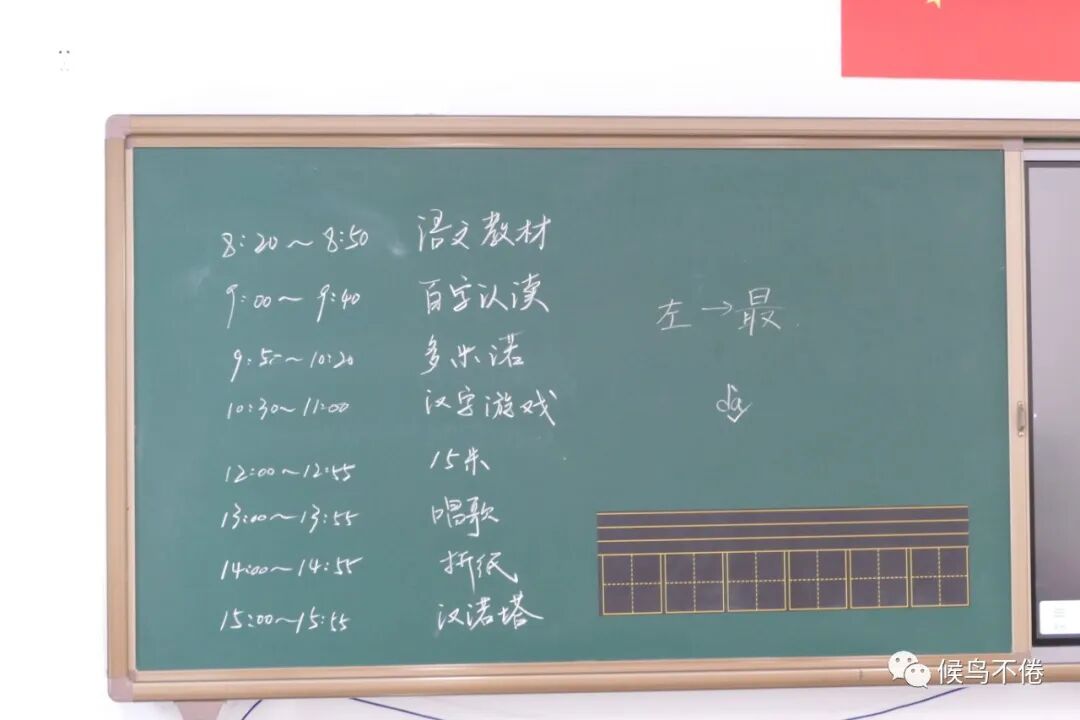 8:20~8:50 语文教材
9:00~9:40 百字认读
9:55~10:20 多米诺
10:30~11:00 汉字游戏
12:00~12:55 15米
13:00~13:55 唱歌
14:00~14:55 折纸
15:00~15:55 汉诺塔
左→最
候鸟不倦